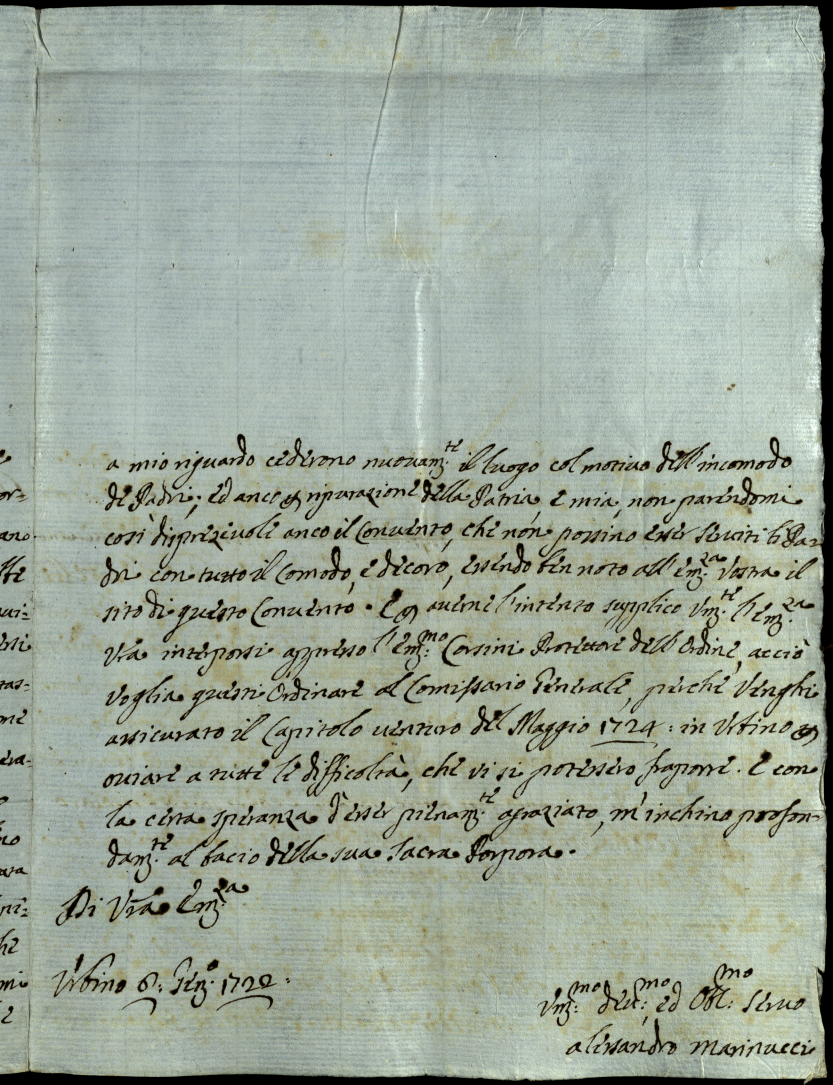 a mio riguardo cederono nuovam.te il luogo col motivo dell'incomodo
de Padri; ed anco per riparazione della Patria, e mia, non parendomi
così disprezevole anco il Convento, che non possino esser serviti li Pa-
dri con tutto il Comodo, e decoro, essendo ben noto all'Em.za Vostra il
sito di questo Convento. E per averne l'intento supplico Um.te l'Em.za
Vra interporsi appresso l'Em.mo Corsini Protettore dell'Ordine, acciò
voglia questi Ordinare al Comissario Generale, perche venghi
assicurato il Capitolo venturo del Maggio 1724: in Urbino per
oviare a tutte le difficoltà, che vi si potessero fraporre. E con
la certa speranza d'esser pienam.te agraziato, m'inchino profon-
dam.te al bacio della sua Sacra Porpora.
Di Vra Em.za
Urbino 8: Gen.o 1722:
Um.mo dev.mo, ed Obl.mo servo
Alessandro Marinucci